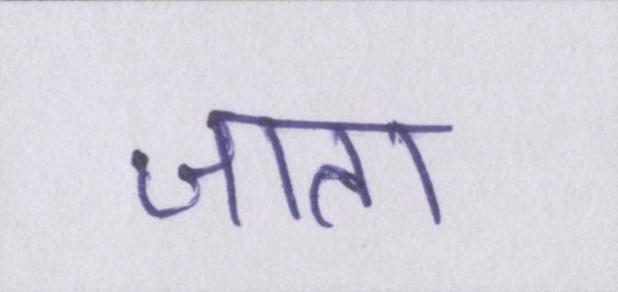 जाता